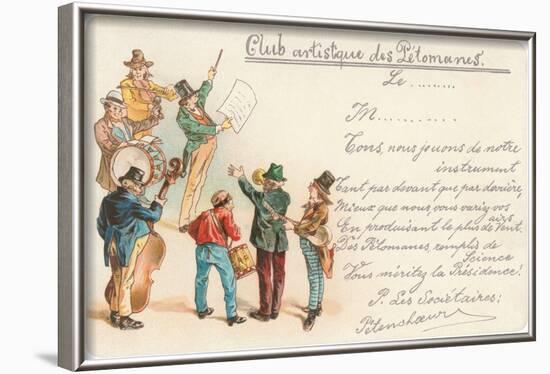 Club artistque des Pétomanes.
Le ........
M..........
Tous, nous jouons de notre
instrument
Tant par devant que par derrière,
Mieux que nous, vous variez vos
airs
En produisant le plus de Vent.
Des Pétomanes, remplis de
Science
Vous méritez la Présidence!
P. Les Sociétaires: